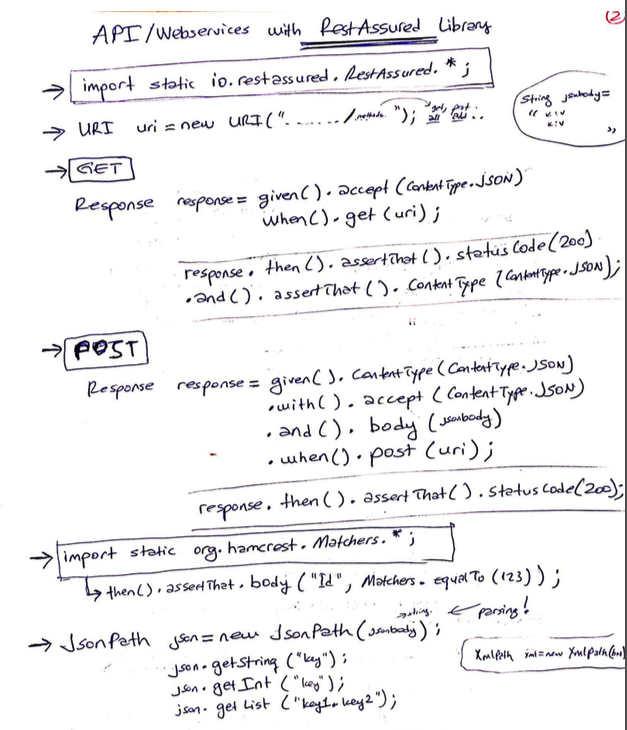 2
API/Webservices with RestAssured Library
→ import static io.restassured.RestAssured.*;
String jsonbody=
" k:v
k:v
"
→ URI uri = new URI("......./methods."); get, post
→ GET
Response response = given().accept(ContentType.JSON)
when().get(uri);
response.then().assertThat().statusCode(200)
.and().assertThat().ContentType(ContentType.JSON);
→ POST
Response response = given().ContentType(ContentType.JSON)
.with().accept(ContentType.JSON)
.and().body(jsonbody)
.when().post(uri);
response.then().assertThat().statusCode(200);
→ import static org.hamcrest.Matchers.*;
↳ then().assertThat.body("Id", Matchers.equalTo(123));
→ string. ← parsing!
→ JsonPath json = new JsonPath(jsonbody);
json.getString("key");
json.getInt("key");
json.getList("key1.key2");
XmlPath xml = new XmlPath(